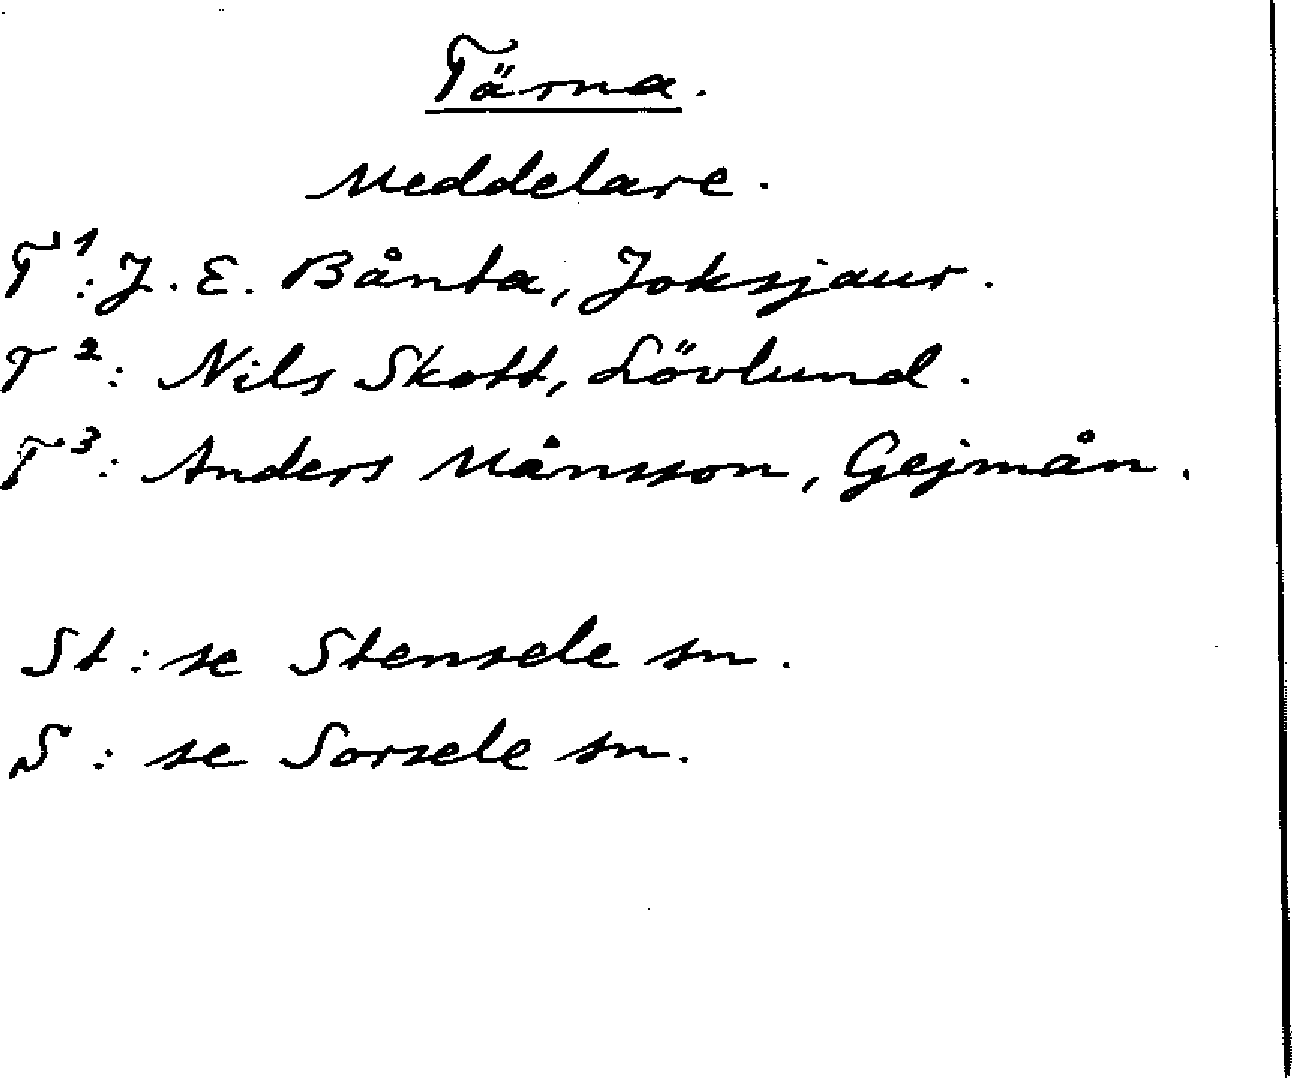 Tärna.
Meddelare.
T¹: J. E. Bånta, Joksjaur.
T²: Nils Skott, Lövlund.
T³: Anders Månsson, Gejmån.
St: se Stensele sn.
S: se Sorsele sn.